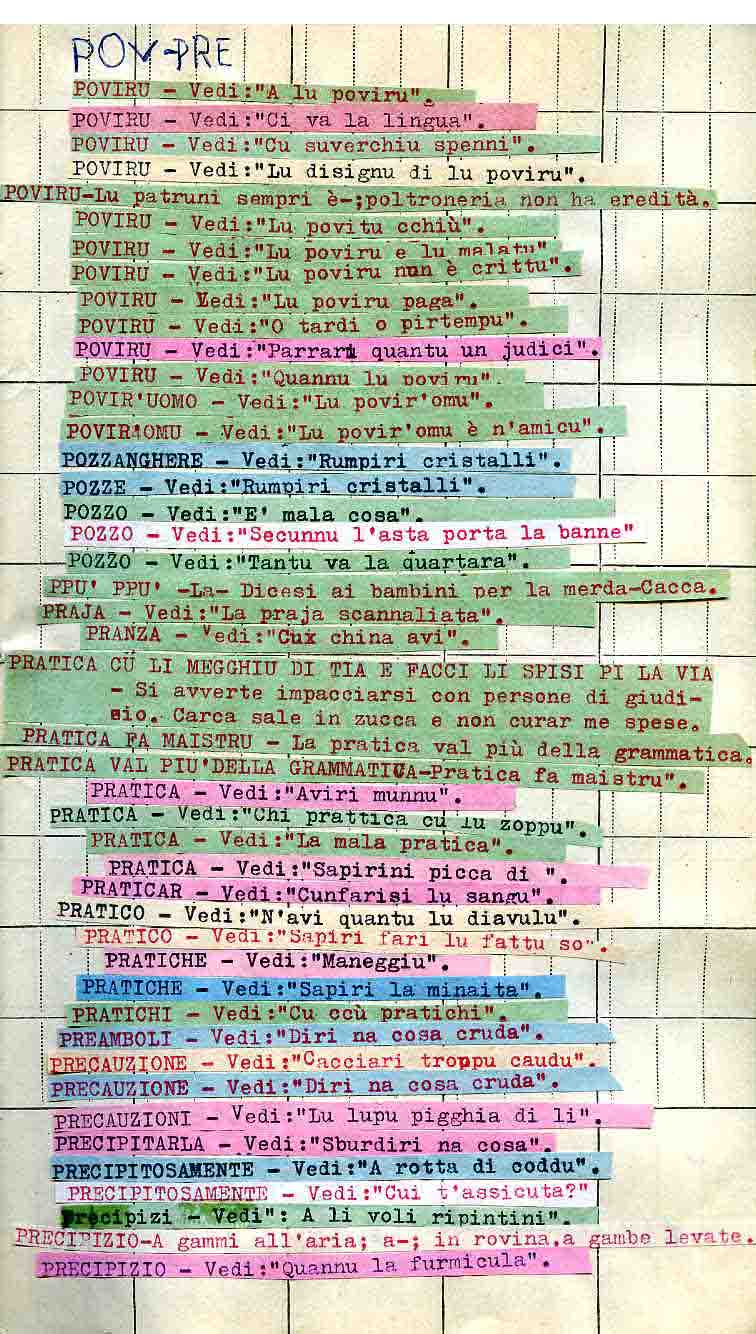 POV-PRE
POVIRU - Vedi:"A lu poviru".
POVIRU - Vedi:"Ci va la lingua".
POVIRU - Vedi:"Cu suverchiu spenni".
POVIRU - Vedi:"Lu disignu di lu poviru".
POVIRU-Lu patruni sempri è-;poltroneria non ha eredità.
POVIRU - Vedi:"Lu povitu cchiù".
POVIRU - Vedi:"Lu poviru e lu malatu"
POVIRU - Vedi:"Lu poviru nun è crittu".
POVIRU - Vedi:"Lu poviru paga".
POVIRU - Vedi:"O tardi o pirtempu".
POVIRU - Vedi:"Parrari quantu un judici".
POVIRU - Vedi:"Quannu lu poviru".
POVIR'UOMO - Vedi:"Lu povir'omu".
POVIR'OMU - Vedi:"Lu povir'omu è n'amicu".
POZZANGHERE - Vedi:"Rumpiri cristalli".
POZZE - Vedi:"Rumpiri cristalli".
POZZO - Vedi:"E' mala cosa".
POZZO - Vedi:"Secunnu l'asta porta la banne"
POZZO - Vedi:"Tantu va la quartara".
PPU' PPU' -La- Dicesi ai bambini per la merda-Cacca.
PRAJA - Vedi:"La praja scannaliata".
PRANZA - Vedi:"Cui china avi".
PRATICA CU LI MEGGHIU DI TIA E FACCI LI SPISI PI LA VIA
- Si avverte impacciarsi con persone di giudi-
sio. Carca sale in zucca e non curar me spese.
PRATICA FA MAISTRU - La pratica val più della grammatica.
PRATICA VAL PIU'DELLA GRAMMATICA-Pratica fa maistru".
PRATICA - Vedi:"Aviri munnu".
PRATICA - Vedi:"Chi prattica cu lu zoppu".
PRATICA - Vedi:"La mala pratica".
PRATICA - Vedi:"Sapirini picca di ".
PRATICAR - Vedi:"Cunfarisi lu sangu".
PRATICO - Vedi:"N'avi quantu lu diavulu".
PRATICO - Vedi:"Sapiri fari lu fattu so".
PRATICHE - Vedi:"Maneggiu".
PRATICHE - Vedi:"Sapiri la minaita".
PRATICHI - Vedi:"Cu ccù pratichi".
PREAMBOLI - Vedi:"Diri na cosa cruda".
PRECAUZIONE - Vedi:"Cacciari troppu caudu".
PRECAUZIONE - Vedi:"Diri na cosa cruda".
PRECAUZIONI - Vedi:"Lu lupu pigghia di li".
PRECIPITARLA - Vedi:"Sburdiri na cosa".
PRECIPITOSAMENTE - Vedi:"A rotta di coddu".
PRECIPITOSAMENTE - Vedi:"Cui t'assicuta?"
Precipizi - Vedi": A li voli ripintini".
PRECIPIZIO-A gammi all'aria; a-; in rovina,a gambe levate.
PRECIPIZIO - Vedi:"Quannu la furmicula".